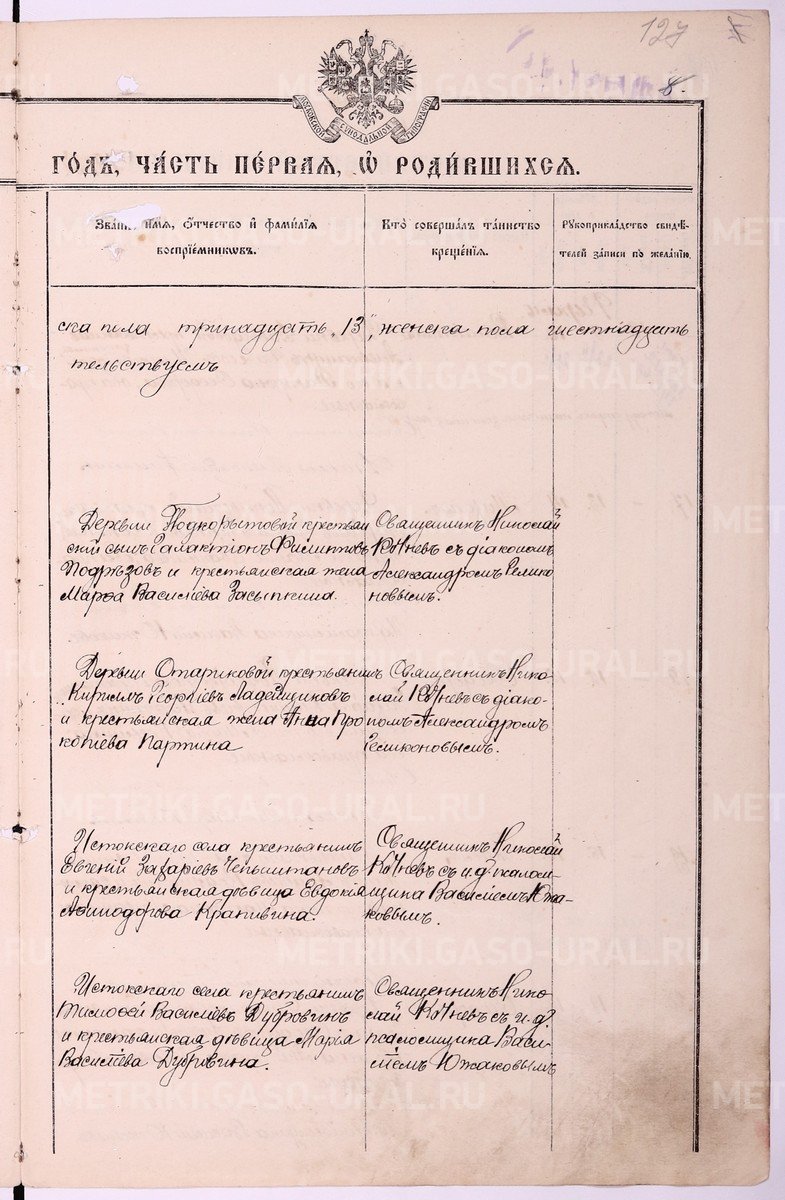 127
8.
МОСКОВСКОЙ СИНОДАЛЬНОЙ ТИПОГРАФИИ
ГОДЪ, ЧАСТЬ ПЕРВАЯ, Ѡ РОДИВШИХСЯ.
Званіе, имя, отчество и фамилія
воспріемниковъ.
Кто совершалъ таинство
крещенія.
Рукоприкладство свидѣ-
телей записи по желанію.
ска пола тринадцать „13", женска пола шестнадцать
тельствуемъ
Деревни Подкорытовой крестьян
скій сынъ Галактіонъ Филиппов
Подрѣзовъ и крестьянская жена
Марѳа Василіева Засыпкина.
Священник Николай
Кочневъ съ діакономъ
Александромъ Гелико
новымъ.
Деревни Стариковой крестьянинъ
Кириллъ Георгіевъ Ладейщиковъ
и крестьянская жена Анна Про
копіева Партина
Священникъ Нико
лай Кочневъ съ діако-
номъ Александромъ
Геликоновымъ.
Истокскаго села крестьянинъ
Евгеній Захаріевъ Чепыштановъ
и крестьянская дѣвица Евдокія
Крапивина.
Священникъ Николай
Кочневъ съ и.д. псалом-
щика Василіемъ Южа-
ковымъ.
Истокскаго села крестьянинъ
Тимоѳей Василіевъ Дубровинъ
и крестьянская дѣвица Марія
Василіева Дубровина.
Священникъ Нико
лай Кочневъ съ и.д.
псаломщика Васи-
ліемъ Южаковымъ
METRIKI.GASO-URAL.RU